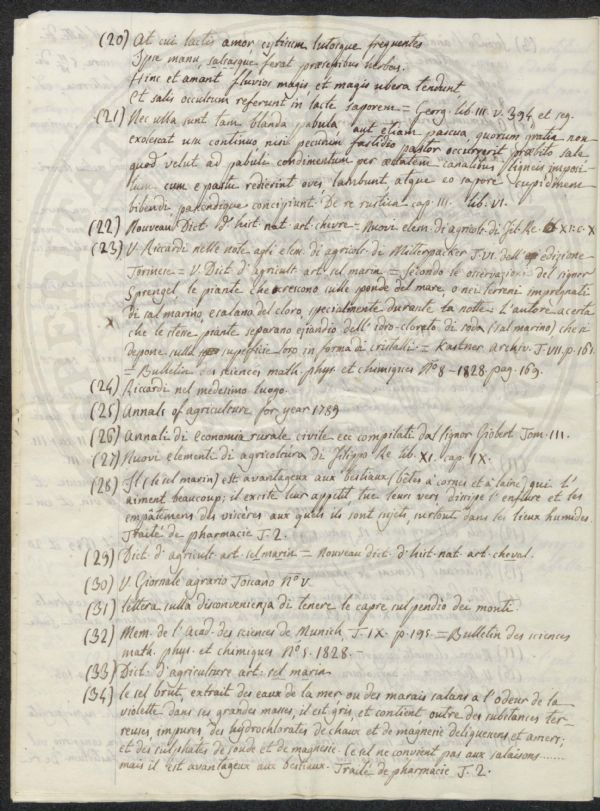 (20) At cui lactis amor, cytisum lutosque frequentes
Ipse manu, salsasque ferat præsepibus herbas.
Hinc et amant fluvios magis et magis ubera tendunt
Et salis occultum referunt in lacte saporem = Georg. lib. III. v. 394 et seg.
(21) Nec ulla sunt tam blanda pabula aut etiam pascua, quorum gratia non
exolescat usu continuo, nisi pecudum fastidio pastor occurrerit præbito sale
quod velut ad pabula condimentum per æstatem canalibus ligneis imposi-
tum, cum e pastu redierint oves, lambunt, atque eo sapore cupidinem
bibendi, pascendique concipiunt: De re rustica cap. III. lib. VI.
(22) Nouveau Dict. d' hist. nat. art. chevre = Nuovi elem. di agricolt. di Fil. Re. XI. c. X
(23) V. Riccardi nelle note agli elem. di agricolt. di Mitterpacker T. VI. dell' edizione
Torinese = V. Dict. d'agricult. art. sel marin = secondo le osservazioni del signor
Sprengel le piante che crescono sulle sponde del mare, o nei terreni impregnati
di sal marino, esalano del cloro, specialmente durante la notte. L'autore accerta
x che le stesse piante separano eziandio dell' idro-clorato di soda (sal marino) che si
depone sulla superficie loro in forma di cristalli = Kastner Archiv. T. VII. p. 161.
= Bulletin des sciences math. phys. et chimiques N.º 8 - 1828. pag. 169.
(24) Riccardi nel medesimo luogo.
(25) Annals of agriculture for year 1789
(26) Annali di economia rurale civile ecc compilati dal signor Giobert Tom. III.
(27) Nuovi elementi di agricoltura di Filippo Re lib. XI. cap. IX.
(28) Il (le sel marin) est avantageux aux bestiaux (bêtes à cornes et à laine) qui l'
aiment beaucoup; il excite leur appetit tue leurs vers dissipe l'enflure et les
empâtemens des viscères aux quels ils sont sujets surtout dans les lieux humides.
Traité de pharmacie T. 2.
(29) Dict. d'agricult. art. sel marin = Nouveau dict. d'hist. nat. art. cheval.
(30) V. Giornale agrario Toscano N.º V.
(31) Lettera sulla disconvenienza di tenere le capre sul pendio dei monti
(32) Mem. de l'Acad. des sciences de Munich T. IX. p. 195. = Bulletin des sciences
math. phys. et chimiques N.º 5. 1828. -
(33) Dict. d'agriculture art. sel marin
(34) Le sel brut, extrait des eaux de la mer ou des marais salans a l'odeur de la
violette dans ses grandes masses, il est gris, et contient outre des substances ter-
reuses, impures, des hydrochlorates de chaux et de magnesie deliquescens et amers;
et des sulphates de soude et de magnesie. Ce sel ne convient pas aux salaisons......
mais il est avantageux aux bestiaux. Traité de pharmacie T. 2.